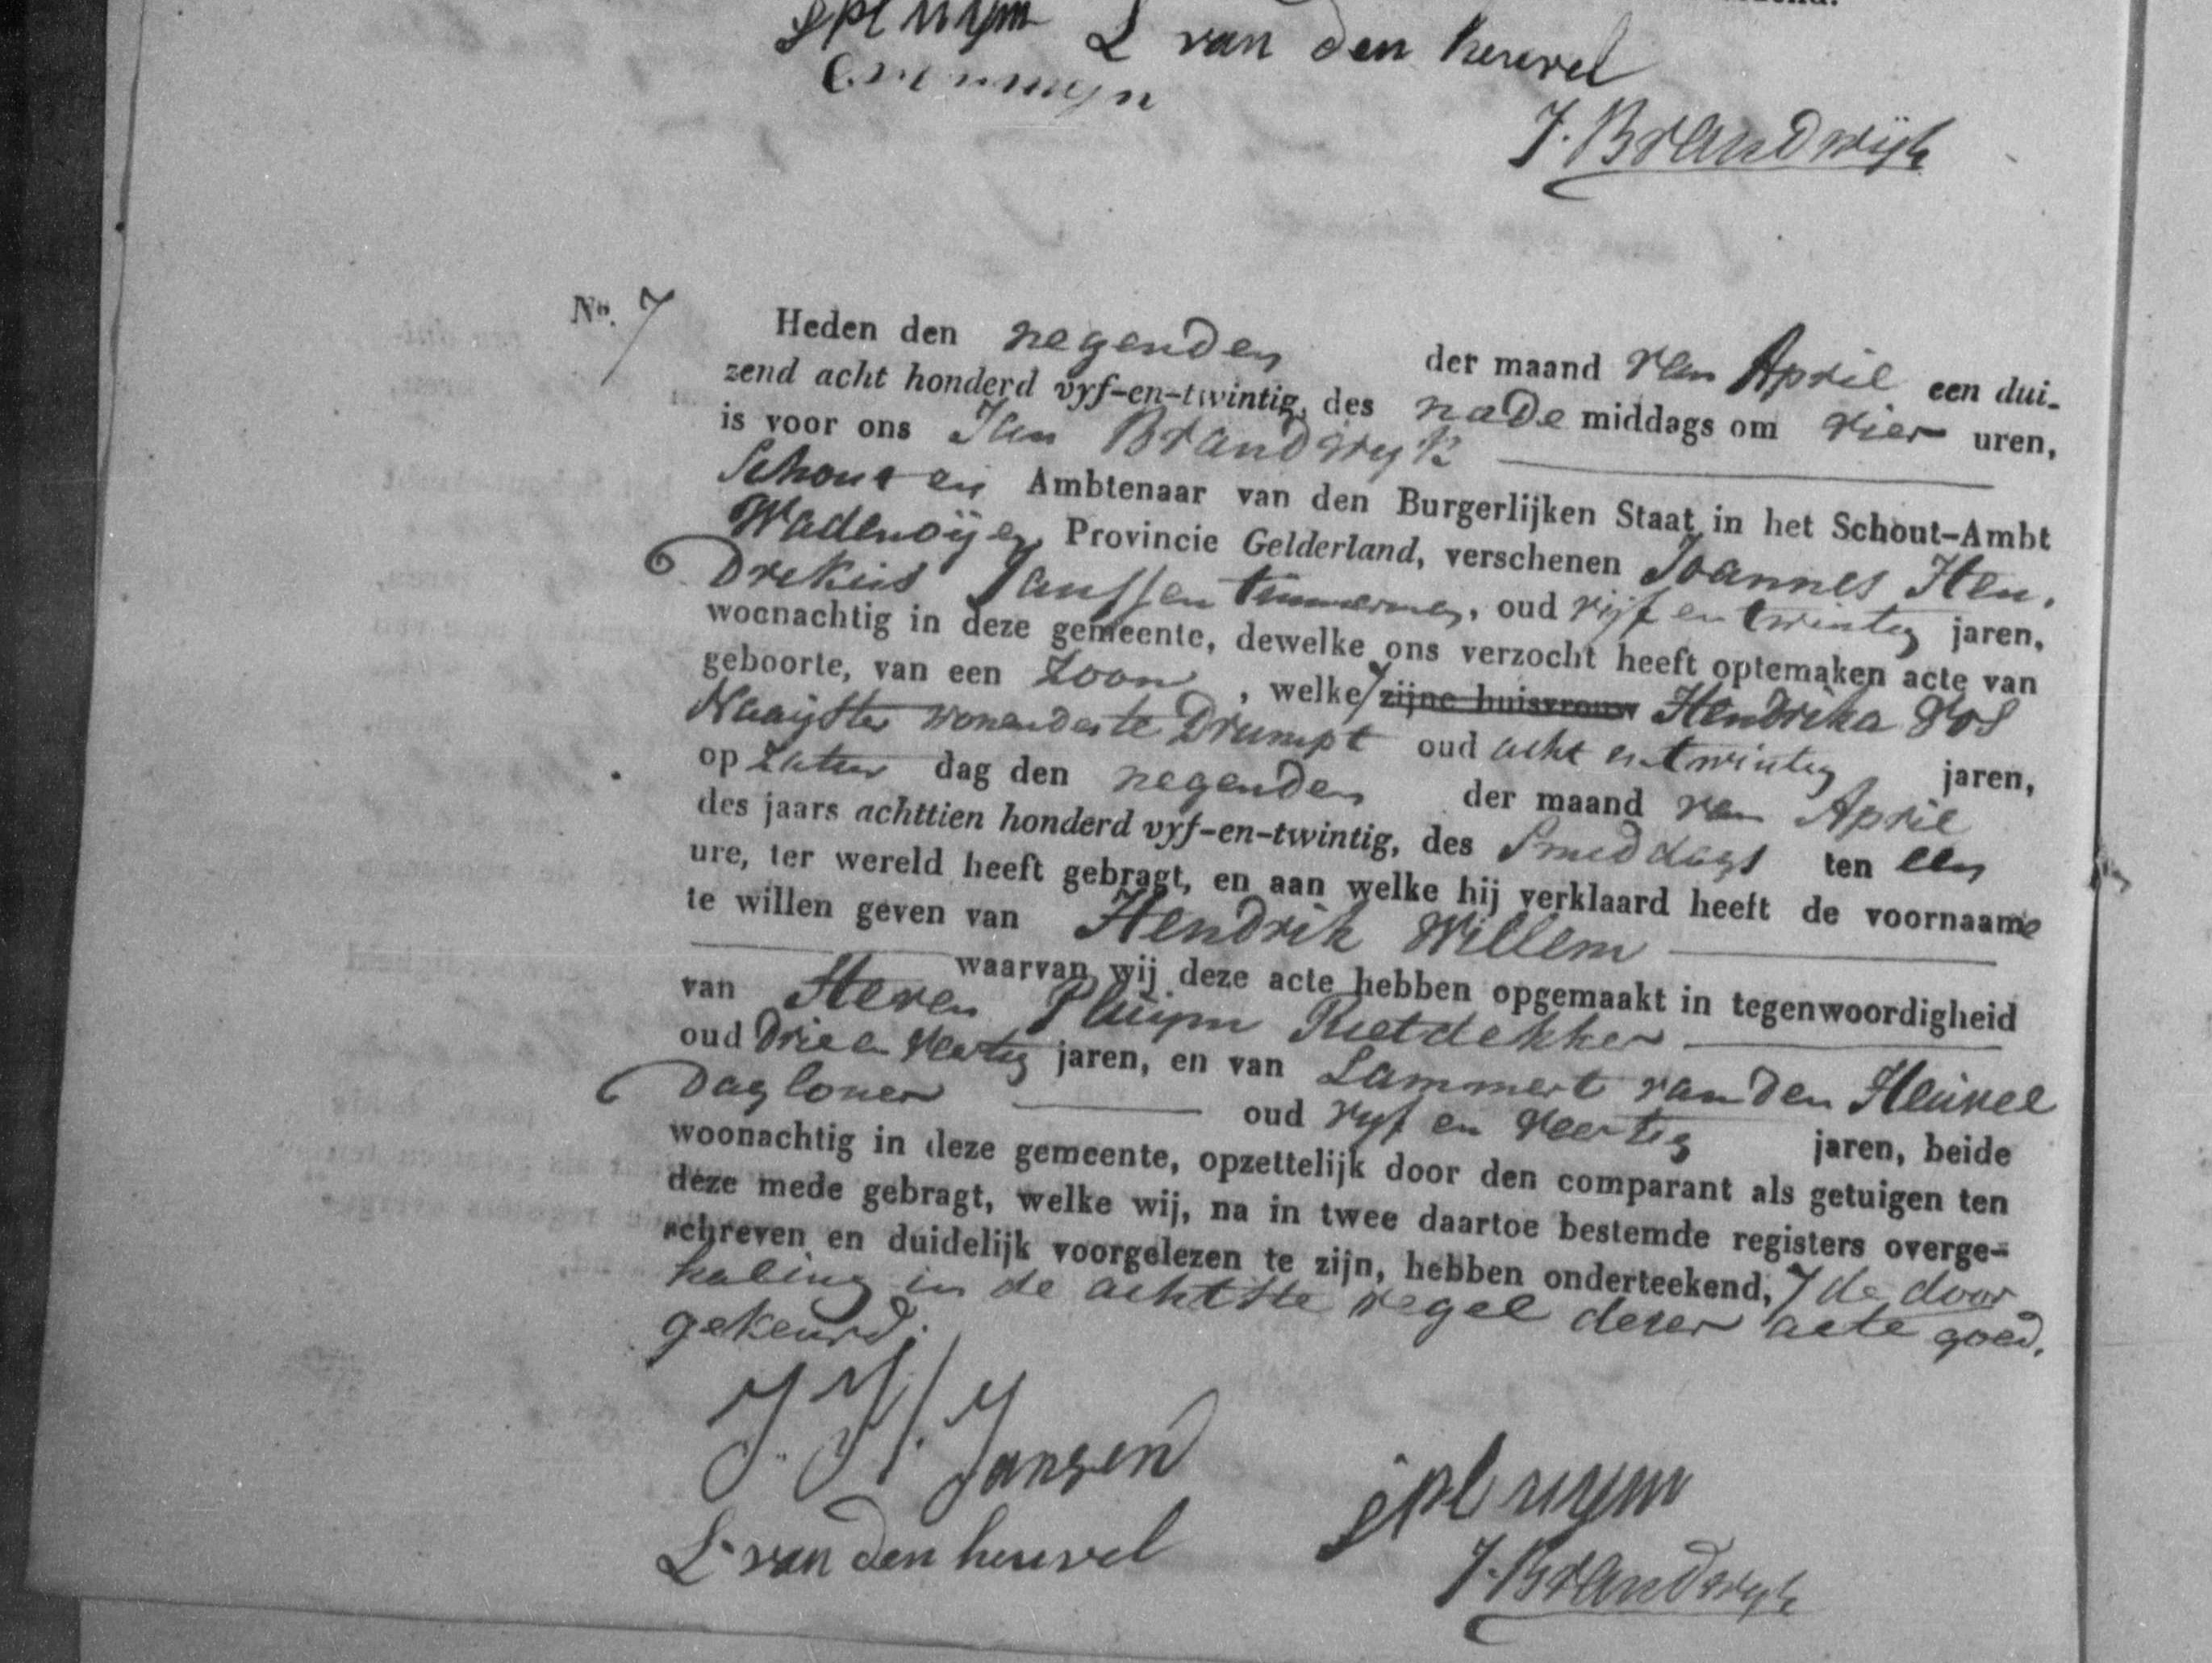 L van den heuvel
J. Brandwijk
No. 7
Heden den negenden der maand van April een dui-
zend acht honderd vyf-en-twintig, des nade middags om vier uren,
is voor ons Jan Brandwyk
Schout en Ambtenaar van den Burgerlijken Staat in het Schout-Ambt
Wadenoijen Provincie Gelderland, verschenen Joannes Hen,
Drekus Janssen timmerman, oud vijf en twintig jaren,
woonachtig in deze gemeente, dewelke ons verzocht heeft optemaken acte van
geboorte, van een zoon, welke zijne huisvrouw Hendrika Vos
Naayster wonende te Drumpt oud acht en twintig jaren,
op zatur dag den negenden der maand van April
des jaars achttien honderd vyf-en-twintig, des smiddags ten een
ure, ter wereld heeft gebragt, en aan welke hij verklaard heeft de voornaame
te willen geven van Hendrik Willem
waarvan wij deze acte hebben opgemaakt in tegenwoordigheid
van Steven Pluijm Rietdekker
oud drie en veertig jaren, en van Lammert van den Heuvel
Dagloner oud vyf en veertig jaren, beide
woonachtig in deze gemeente, opzettelijk door den comparant als getuigen ten
deze mede gebragt, welke wij, na in twee daartoe bestemde registers overge-
schreven en duidelijk voorgelezen te zijn, hebben onderteekend, de door
haling in de achtste regel dezer acte goed,
gekeurd.
J. H. Jansen
spluijm
L. van den heuvel
J. Brandwyk